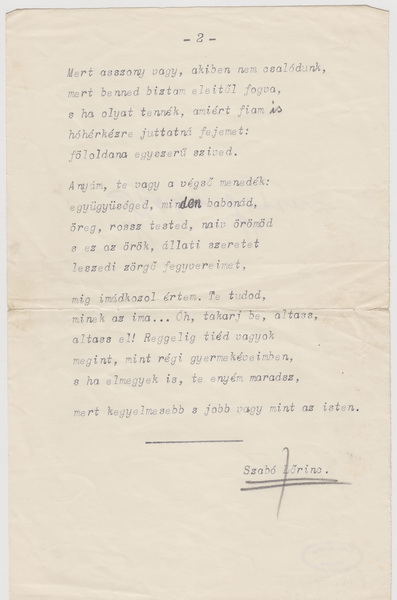 - 2 -
Mert asszony vagy, akiben nem csalódunk,
mert benned biztam eleitől fogva,
s ha olyat tennék, amiért fiam is
hóhérkézre juttatná fejemet:
föloldana egyszerű szived.
Anyám, te vagy a végső menedék:
együgyüséged, minden babonád,
öreg, rossz tested, naiv örömöd
s ez az örök, állati szeretet
leszedi zörgő fegyvereimet,
mig imádkozol értem. Te tudod,
minek az ima... Óh, takarj be, altass,
altass el! Reggelig tiéd vagyok
megint, mint régi gyermekéveimben,
s ha elmegyek is, te enyém maradsz,
mert kegyelmesebb s jobb vagy mint az isten.
Szabó Lőrinc.